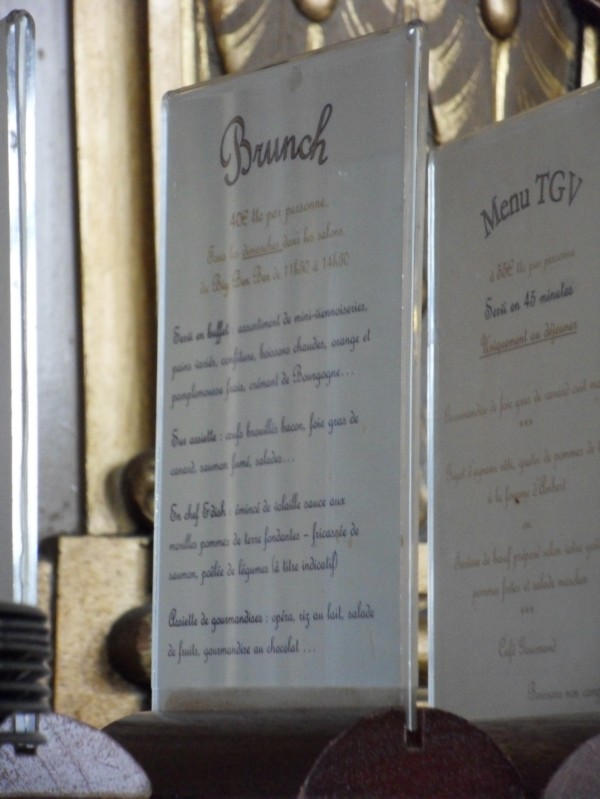 Brunch
40€ ttc par personne.
Tous les dimanches dans les salons
du Big Ben Bar de 11h30 à 14h30
Servi en buffet : assortiment de mini-viennoiseries,
pains variés, confiture, boissons chaudes, orange et
pamplemousse frais, crémant de Bourgogne...
Sur assiette : œufs brouillés bacon, foie gras de
canard, saumon fumé, salades...
En chef Edish : émincé de volaille sauce aux
morilles pommes de terre fondantes – fricassée de
saumon, poêlée de légumes (à titre indicatif)
Assiette de gourmandises : opéra, riz au lait, salade
de fruits, gourmandise au chocolat ...
Menu TGV
à 55€ ttc par personne
Servi en 45 minutes
Uniquement au déjeuner
foie gras de canard
***
d'agneau rôti, de pommes de
à la d'Ambert
ou
de bœuf préparé selon votre
pommes frites et salade
***
Café Gourmand
Boissons non